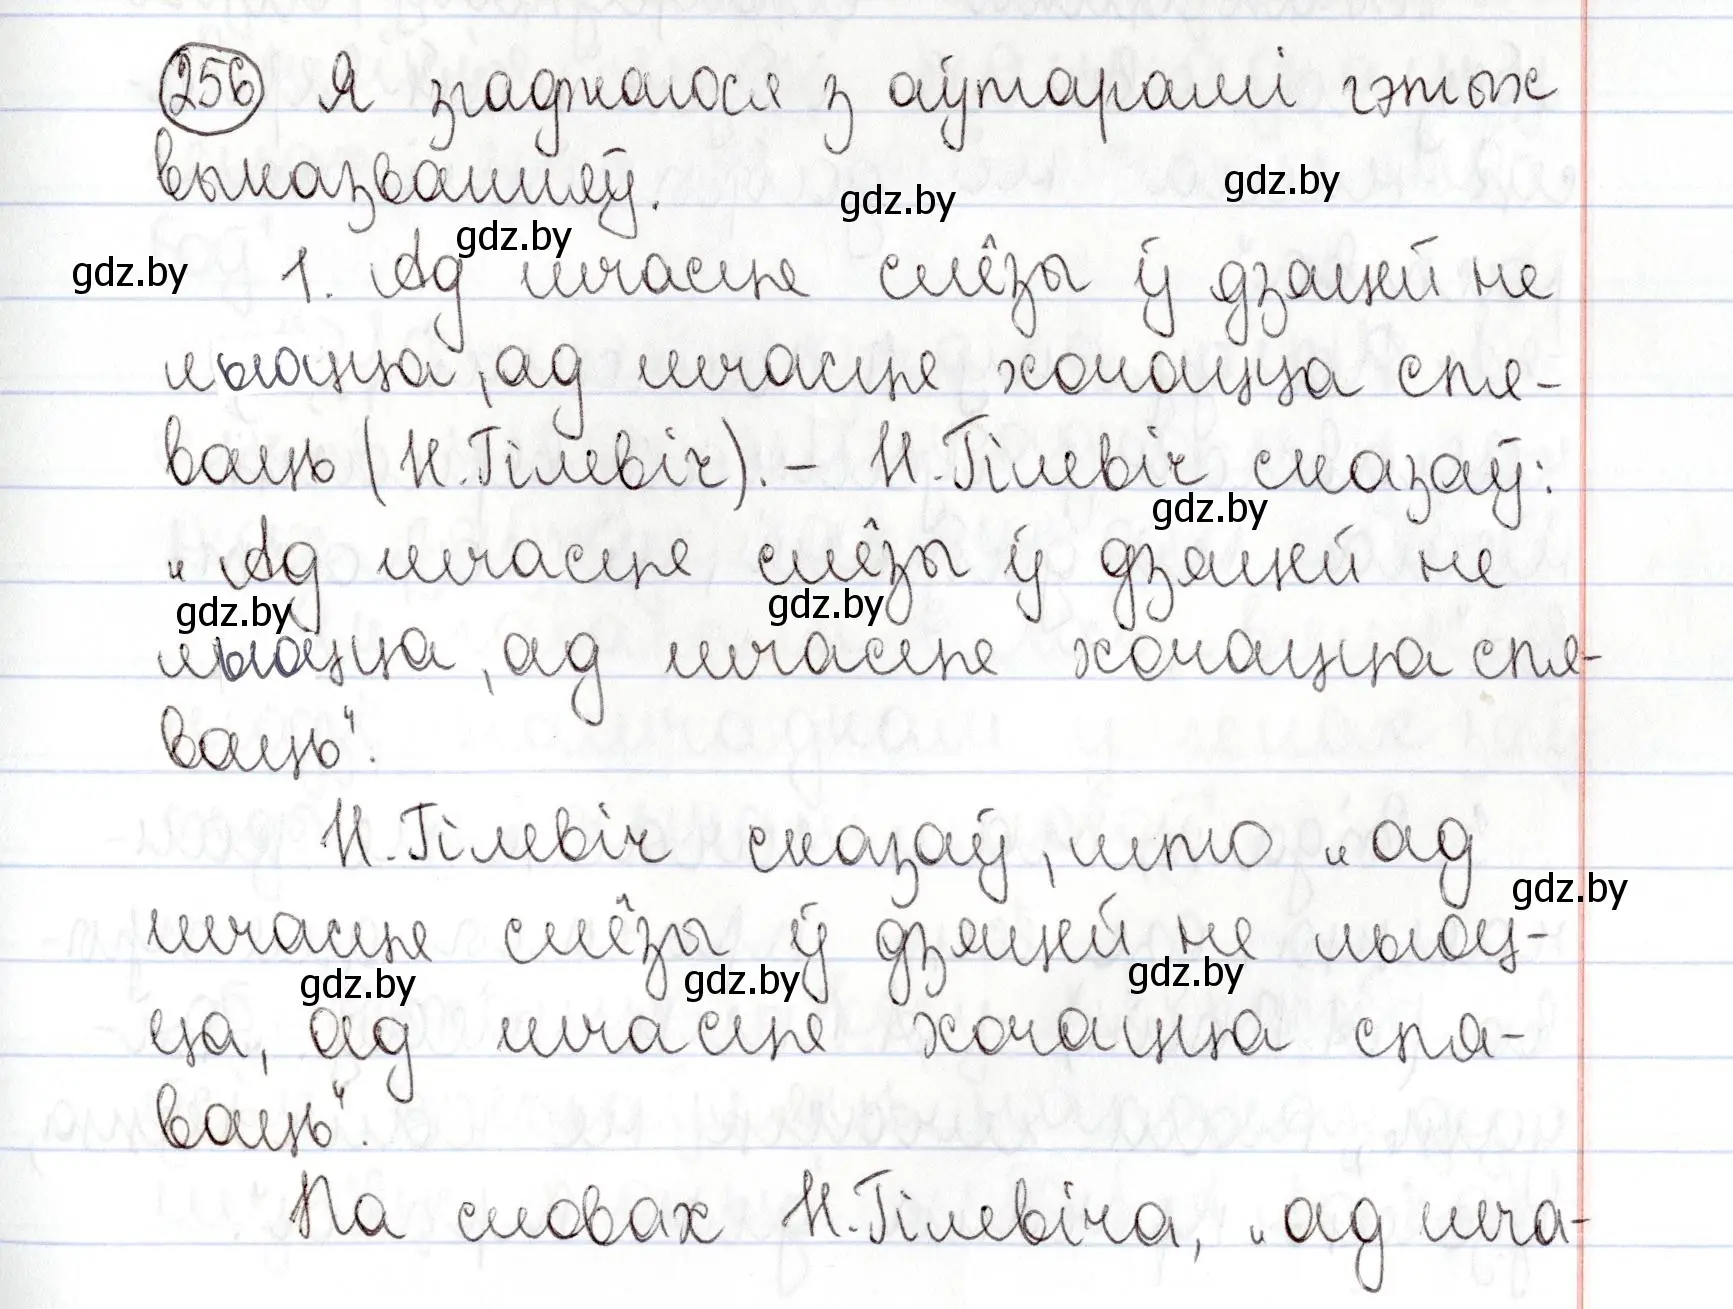 256 Я згаджаюся з аўтарамі гэтых
выказванняў.
gdz.by gdz.by
gdz.by
gdz.by 1. Ад шчасця слёзы ў дзяцей не
льюцца, ад шчасця хочацца спя-
ваць (Н. Гілевіч). – Н. Гілевіч сказаў:
gdz.by
„Ад шчасця слёзы ў дзяцей не
gdz.by gdz.by
льюцца, ад шчасця хочацца спя-
ваць“.
Н. Гілевіч сказаў, што „ад
gdz.by
шчасця слёзы ў дзяцей не льюц-
gdz.by gdz.by gdz.by
ца, ад шчасця хочацца спя-
ваць“.
Па словах Н. Гілевіча, „ад шча-